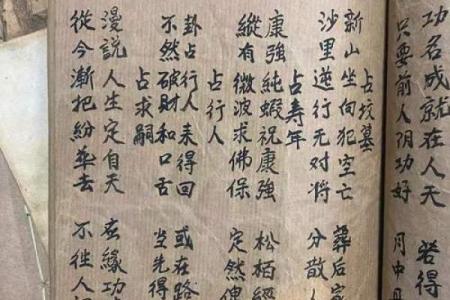 功名成就在人天 若得
只要前人阴功好 月中
占坟墓
新山坐向犯空亡 葬后
沙里逆行无对将 分散人
占寿年
康强純蝦祝康強 松柏經
縱有微波求佛保 定然俾
占行人
卦占行人未得回 或在路
不然破財和口舌 当先得
占求嗣
漫說人生定自天 在緣功
從今漸把紛華去 不往人